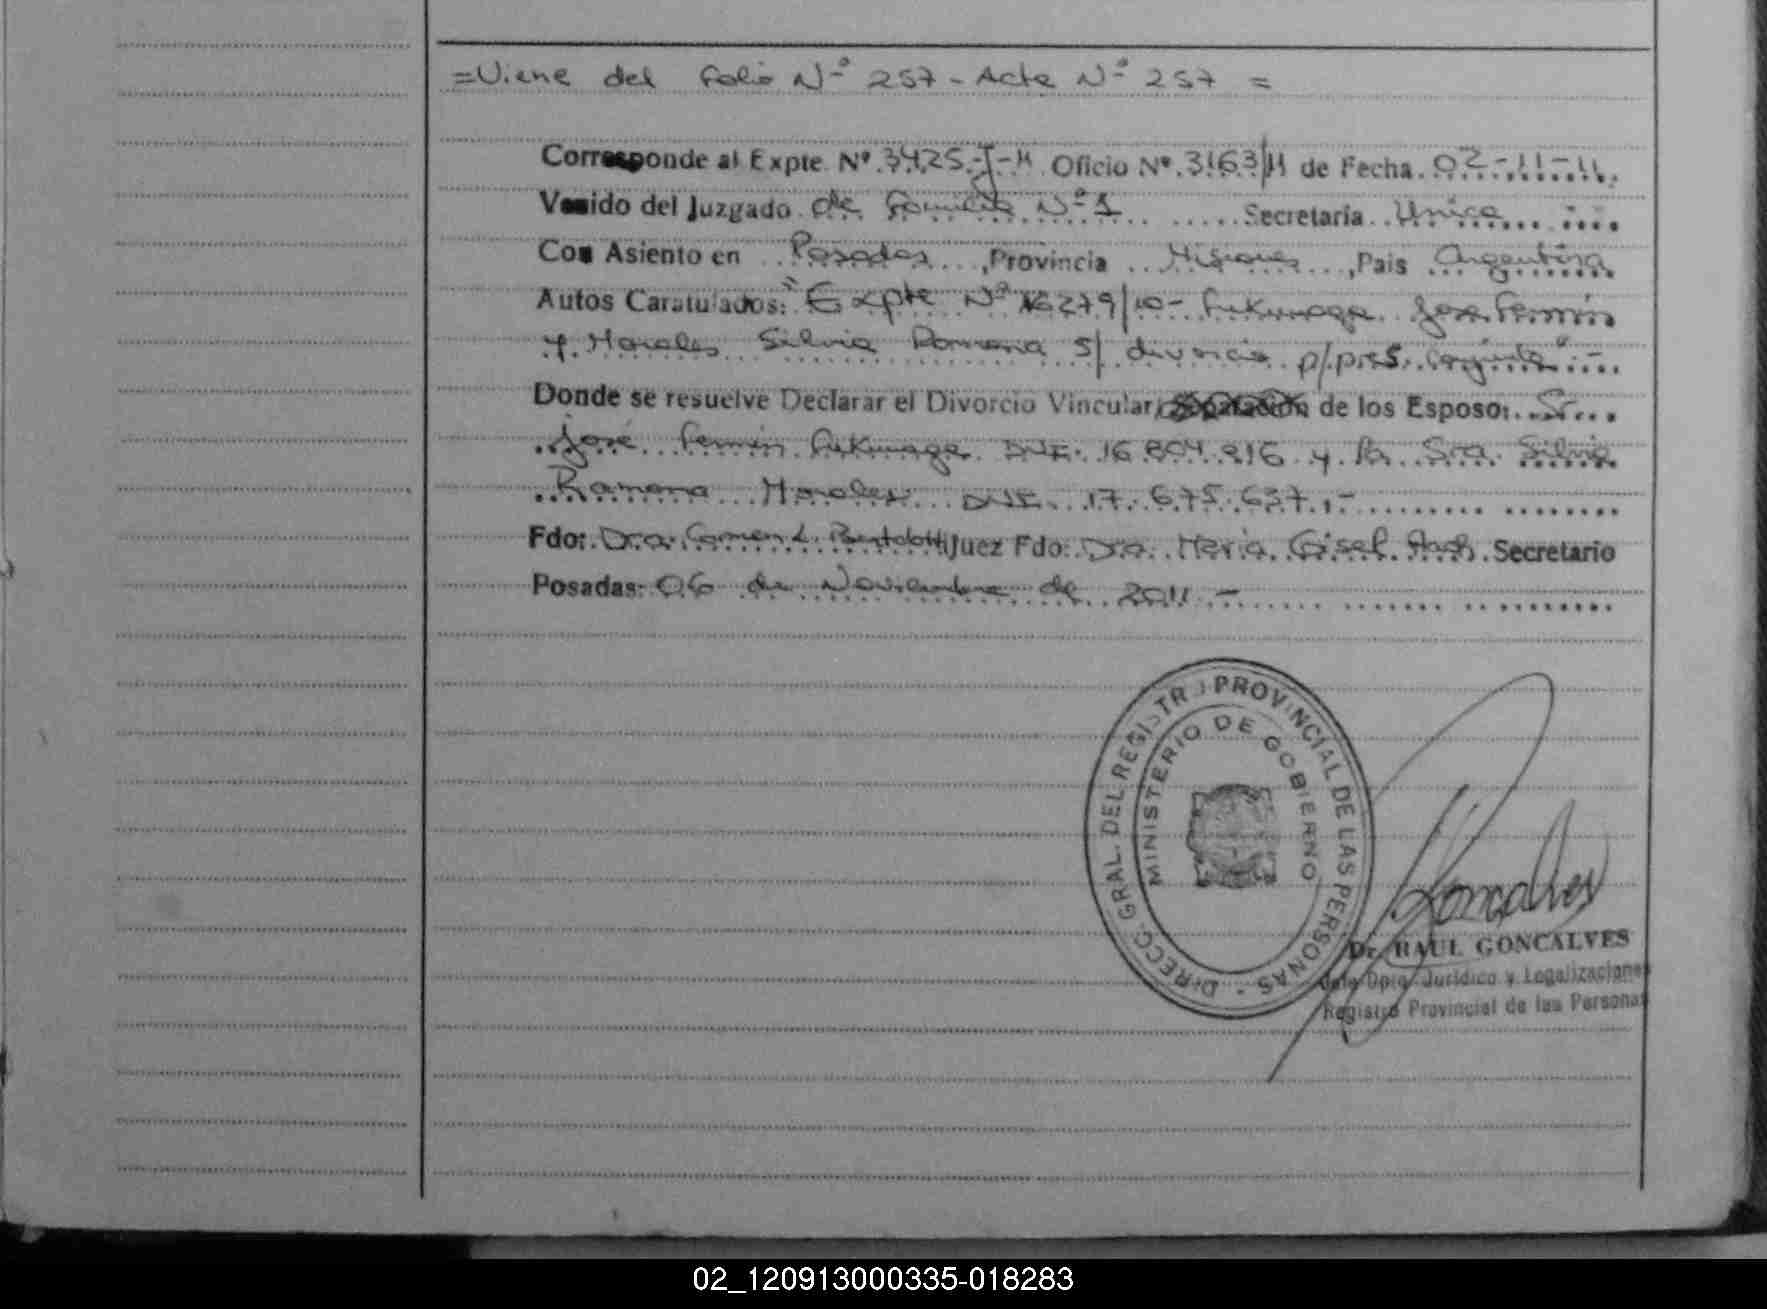 =Viene del folio Nº 257 - Acta Nº 257 =
Corresponde al Expte. Nº 3425-J-11 Oficio Nº 3163/11 de Fecha 02-11-11.
Venido del Juzgado de Familia Nº 1 Secretaría Unica
Con Asiento en Posadas, Provincia Misiones, País Argentina
Autos Caratulados: "Expte Nº 16279/10- Fukunaga José Fermín
y Morales Silvia Ramona s/ divorcio p/pres. conjunta".-
Donde se resuelve Declarar el Divorcio Vincular, de los Esposos Sr.
José Fermín Fukunaga DNI. 16.804.816 y la Sra. Silvia
Ramona Morales DNI. 17.675.637.-
Fdo: Dra. Carmen L. Bertolotti Juez Fdo: Dra. María Gisel Secretario
Posadas: 06 de Noviembre de 2011.-
DIRECC. GRAL. DEL REGISTRO PROVINCIAL DE LAS PERSONAS -
MINISTERIO DE GOBIERNO
Goncalves
Dr. RAUL GONCALVES
Jefe Dpto. Jurídico y Legalizaciones
Registro Provincial de las Personas
02_120913000335-018283